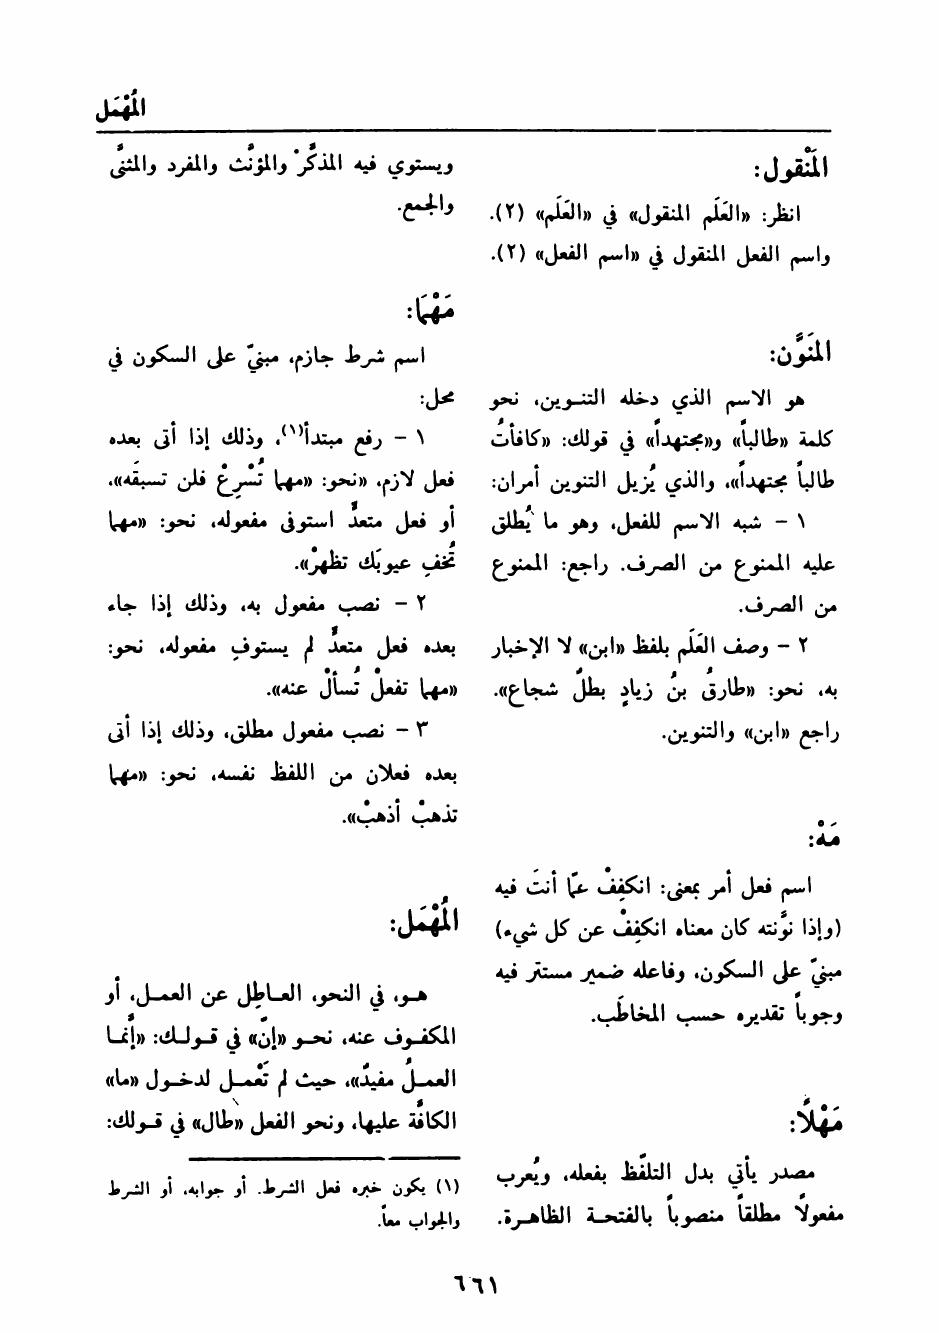 المُهْمَل
المَنْقول:
انظر: «العَلَم المنقول» في «العَلَم» (٢).
واسم الفعل المنقول في «اسم الفعل» (٢).
المَنَوَّن:
هو الاسم الذي دخله التنوين، نحو
كلمة «طالباً» و«مجتهداً» في قولك: «كافأتُ
طالباً مجتهداً»، والذي يُزيل التنوين أمران:
١ - شبه الاسم للفعل، وهو ما يُطلق
عليه الممنوع من الصرف. راجع: الممنوع
من الصرف.
٢ - وصف العَلَم بلفظ «ابن» لا الإخبار
به، نحو: «طارقُ بنُ زيادٍ بطلٌ شجاع».
راجع «ابن» والتنوين.
مَهْ:
اسم فعل أمر بمعنى: انكفِفْ عمّا أنتَ فيه
(وإذا نوَّنته كان معناه انكفِفْ عن كل شيء)
مبنيّ على السكون، وفاعله ضمير مستتر فيه
وجوباً تقديره حسب المخاطَب.
مَهْلًا:
مصدر يأتي بدل التلفّظ بفعله، ويُعرب
مفعولًا مطلقاً منصوباً بالفتحة الظاهرة.
ويستوي فيه المذكَّرْ والمؤنَّث والمفرد والمثنَّى
والجمع.
مَهْمَا:
اسم شرط جازم، مبنيّ على السكون في
محل:
١ - رفع مبتدأ(١)، وذلك إذا أتى بعده
فعل لازم، «نحو: «مهما تُسْرِعْ فلن تسبقَه»،
أو فعل متعدٍّ استوفى مفعوله، نحو: «مهما
تُخفِ عيوبَك تظهرْ».
٢ - نصب مفعول به، وذلك إذا جاء
بعده فعل متعدٍّ لم يستوفِ مفعوله، نحو:
«مهما تفعلْ تُسألْ عنه».
٣ - نصب مفعول مطلق، وذلك إذا أتى
بعده فعلان من اللفظ نفسه، نحو: «مهما
تذهبْ أذهبْ».
المُهْمَل:
هو، في النحو، العاطِل عن العمل، أو
المكفوف عنه، نحو «إنّ» في قولك: «إنَّما
العملُ مفيدٌ»، حيث لم تَعْمل لدخول «ما»
الكافَّة عليها، ونحو الفعل «طال» في قولك:
(١) يكون خبره فعل الشرط. أو جوابه، أو الشرط
والجواب معاً.
٦٦١